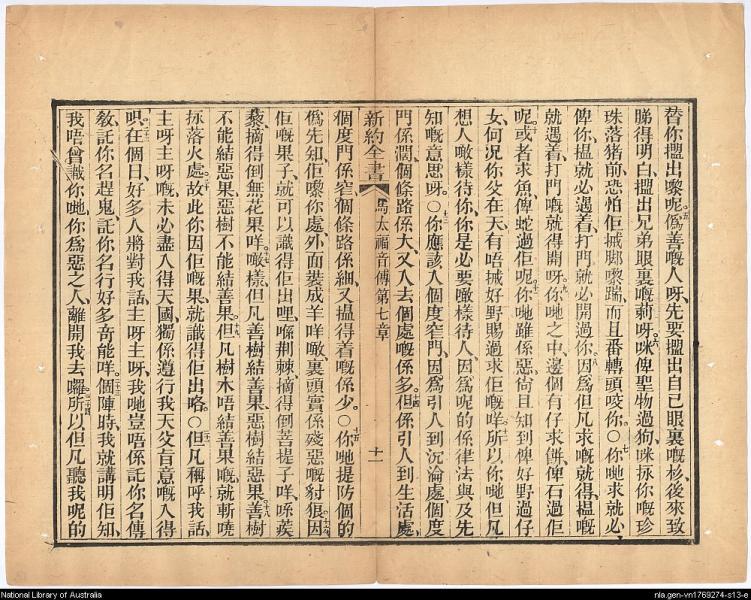 替你搵出嚟呢偽善嘅人呀先要搵出自己眼裏嘅杉後來致
睇得明白搵出兄弟眼裏嘅莿呀咪俾聖物過狗咪捄你嘅珍
珠落猪前恐怕佢㧻脚嚟踹而且番轉頭咬你○你哋求就必
俾你搵就必遇着打門就必開過你因為但凡求嘅就得搵嘅
就遇着打門嘅就得開呀你哋之中邊個有仔求餅俾石過佢
呢或者求魚俾蛇過佢呢你哋雖係惡尙且知到俾好野過仔
女何況你父在天有唔㧻好野賜過求佢嘅咩所以你哋但凡
想人噉樣待你你是必要噉樣待人因為呢的係律法與及先
知嘅意思呀○你應該入個度窄門因為引人到沉淪處個度
門係濶個條路係大又入去個處嘅係多但係引人到生活處
新約全書
馬太福音傳第七章
十一
個度門係窄個條路係細又搵得着嘅係少○你哋提防個的
偽先知佢嚟你處外面裝成羊咩噉裏頭實係殘惡嘅豺狼因
佢嘅果子就可以識得佢出哩喺荆棘摘得倒菩提子咩喺蒺
藜摘得倒無花果咩噉樣但凡善樹結善果惡樹結惡果善樹
不能結惡果惡樹不能結善果但凡樹木唔結善果嘅就斬嘵
捄落火處故此你因佢嘅果就識得佢出咯○但凡稱呼我話
主呀主呀嘅未必盡入得天國獨係遵行我天父旨意嘅入得
呮在個日好多人將對我話主呀主呀我哋豈唔係託你名傳
敎託你名趕鬼託你名行好多奇能咩個陣時我就講明佢知
我唔曾識你哋你為惡之人離開我去囉所以但凡聽我呢的
National Library of Australia
nla.gen-vn1769274-s13-e